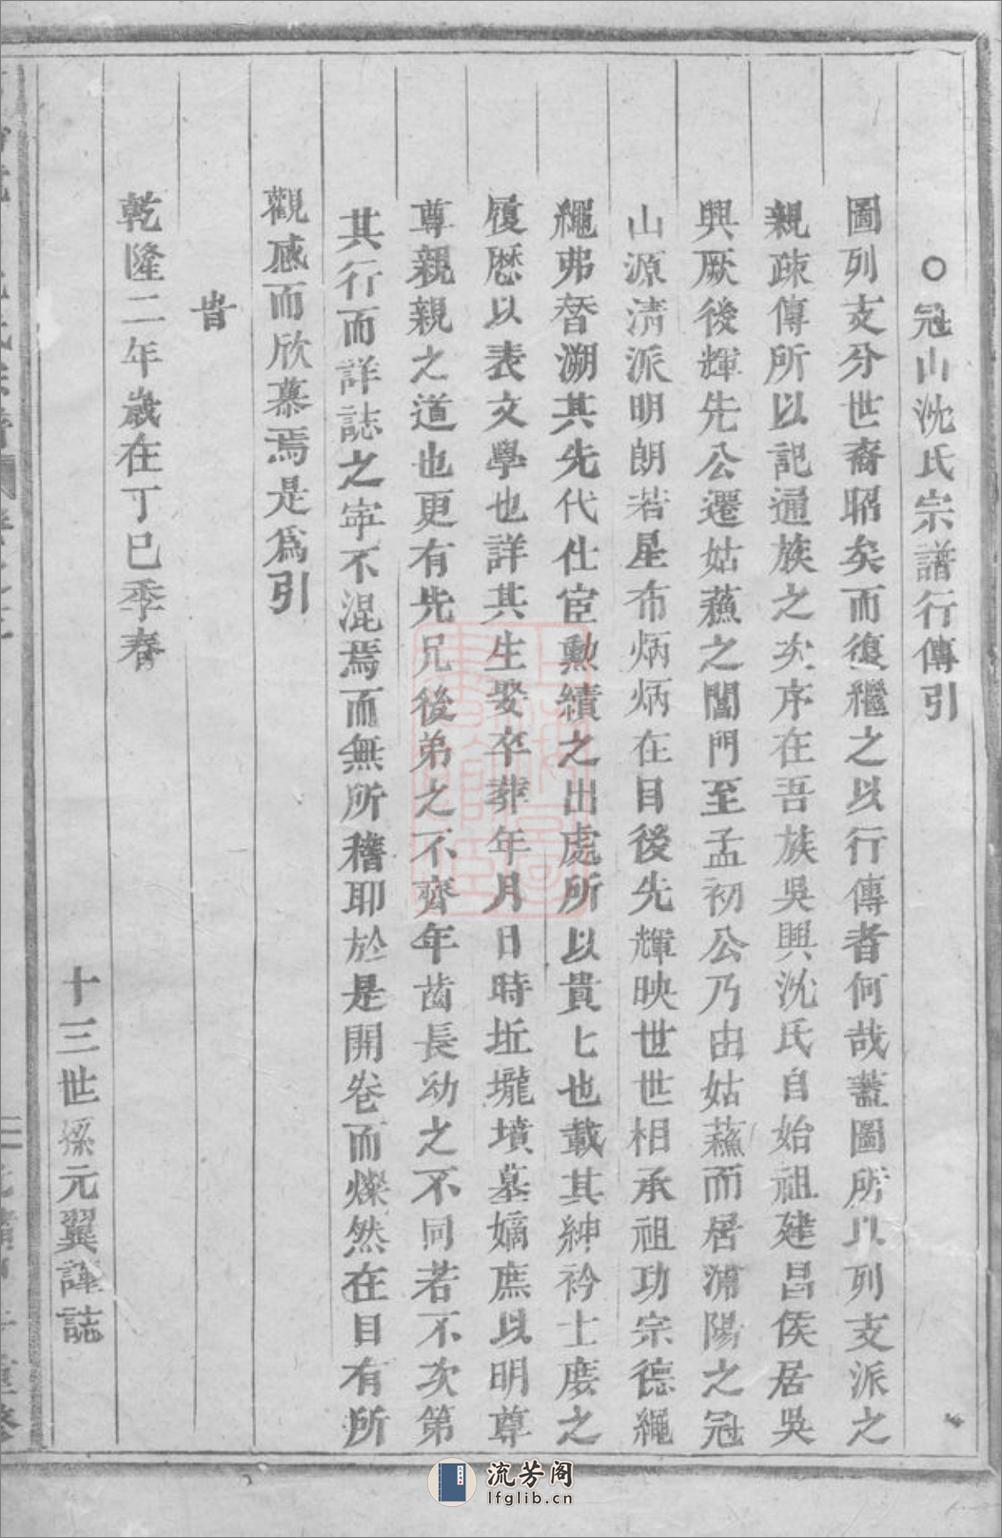 ○冠山沈氏宗譜行傳引
圖列支分世裔昭矣而復繼之以行傳者何哉蓋圖所以列支派之
親疎傳所以記通族之次序在吾族吳興沈氏自始祖建昌侯居吳
興厥後輝先公遷姑蘓之閶門至孟初公乃由姑蘓而居浦陽之冠
山源清派明朗若星布炳炳在目後先輝映世世相承祖功宗德繩
繩弗替溯其先代仕宦勲績之出處所以貴七也載其紳衿士庶之
履歷以表文學也詳其生娶卒葬年月日時坵壠墳墓嫡庶以明尊
尊親親之道也更有先兄後弟之不齊年齒長幼之不同若不次第
其行而詳誌之寧不混焉而無所稽耶於是開卷而燦然在目有所
觀感而欣慕焉是為引
旹
乾隆二年歲在丁巳季春
十三世孫元翼謹誌
流芳阁
lfglib.cn